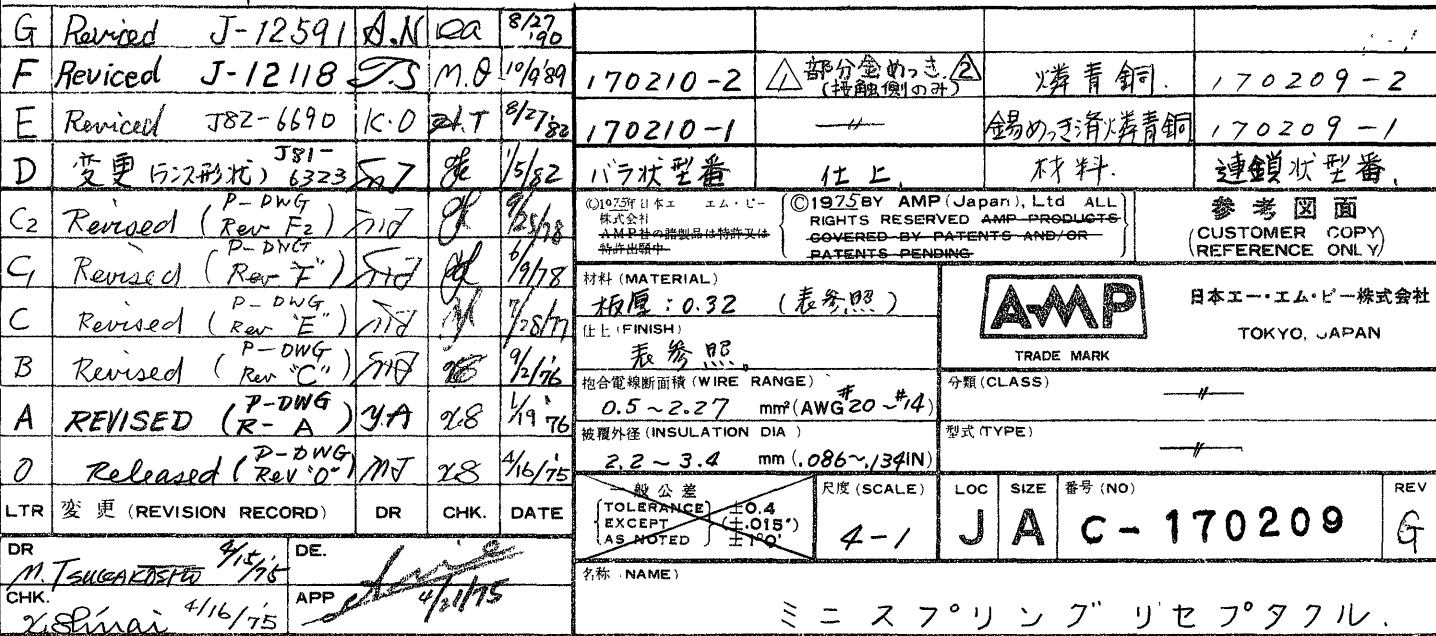 G Reviced J-12591 A.N 8/27 '90
F Reviced J-12118 J.S M.O 10/9 '89
E Reviced J82-6690 K.O H.T 8/27 '82
D 変更(ランス形状) J81-6323 1/5/82
C2 Revised (P-DWG Rev F2) 9/25/78
C1 Revised (P-DWG Rev "F") 6/9/78
C Revised (P-DWG Rev "E") 7/28/77
B Revised (P-DWG Rev "C") 9/2/'76
A REVISED (P-DWG R-A) Y.A 1/19 '76
0 Released (P-DWG Rev "0") M.J 4/16/'75
LTR 変更 (REVISION RECORD) DR CHK. DATE
DR M. TSUGAKOSHI 4/15/'75 DE.
CHK. 4/16/'75 APP 4/21/75
170210-2 △1 部分金めっき. △2 (接触側のみ) 燐青銅. 170209-2
170210-1 〃 錫めっき済燐青銅 170209-1
バラ状型番 仕上. 材料. 連鎖状型番.
Ⓒ1975年日本エ エム・ピー
株式会社
AMP社の諸製品は特許又は
特許出願中
Ⓒ1975 BY AMP (Japan), Ltd ALL
RIGHTS RESERVED AMP PRODUCTS
COVERED BY PATENTS AND/OR
PATENTS PENDING
参考図面
(CUSTOMER COPY)
(REFERENCE ONLY)
材料 (MATERIAL)
板厚:0.32 (表参照)
仕上 (FINISH)
表参照.
抱合電線断面積 (WIRE RANGE)
0.5~2.27 mm² (AWG #20~#14)
被覆外径 (INSULATION DIA )
2.2~3.4 mm (.086~.134IN)
AMP
TRADE MARK
日本エー・エム・ピー株式会社
TOKYO, JAPAN
分類 (CLASS)
〃
型式 (TYPE)
〃
一般公差
TOLERANCE ±0.4
EXCEPT (±.015")
AS NOTED ±1°0'
尺度 (SCALE)
4-1
LOC J
SIZE A
番号 (NO) C-170209
REV G
名称 NAME)
ミニスプリング リセプタクル.